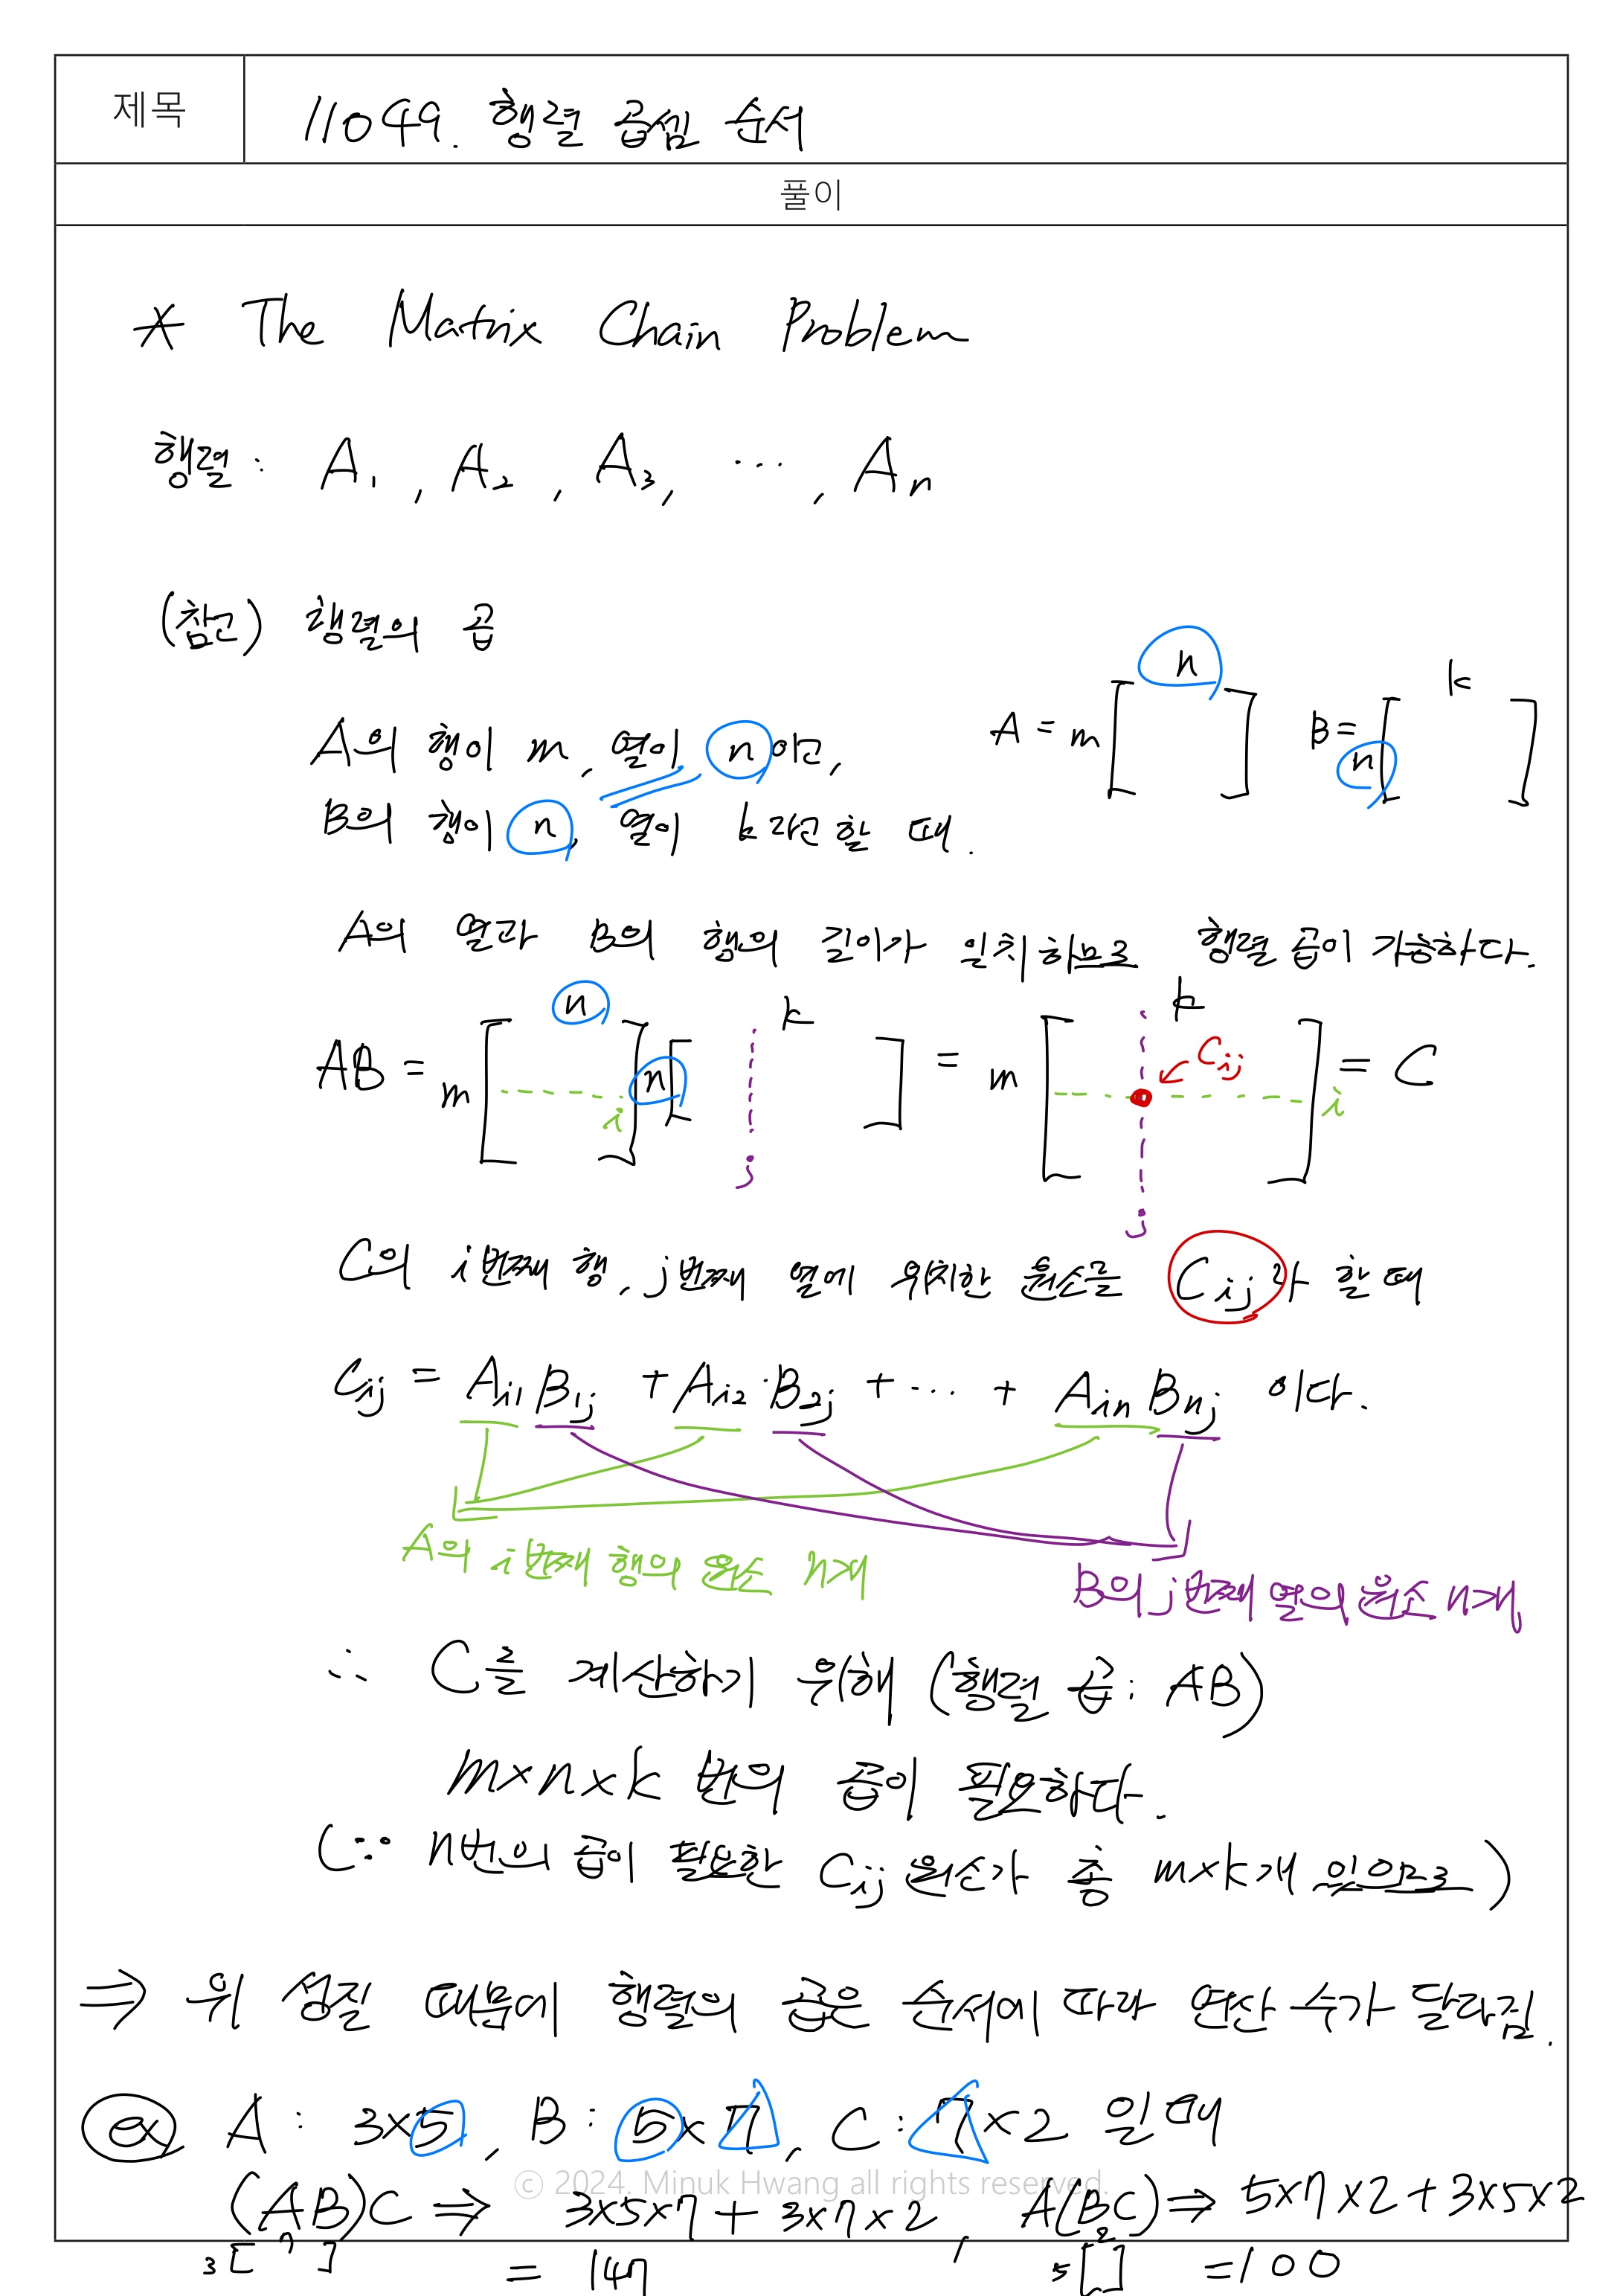 제목
11049. 행렬 곱셈 순서
풀이
* The Matrix Chain Problem
행렬 : A₁, A₂, A₃, ⋯, Aₙ
(참고) 행렬의 곱
A의 행이 m, 열이 n이고,
B의 행이 n, 열이 k라고 할 때.
A = m [ n ] B = n [ k ]
A의 열과 B의 행의 길이가 일치하므로 행렬 곱이 가능하다.
AB = m [ n i ] n [ k j ] = m [ k Cij i j ] = C
C의 i번째 행, j번째 열에 위치한 원소를 Cij라 할 때
Cij = Ai1 B1j + Ai2·B2j + ⋯ + Ain Bnj 이다.
A의 i번째 행의 원소 n개
B의 j번째 열의 원소 n개
∴ C를 계산하기 위해 (행렬 곱 : AB)
m×n×k 번의 곱이 필요하다.
(∵ n번의 곱이 필요한 Cij 원소가 총 m×k개 있으므로)
⇒ 위 성질 때문에 행렬의 곱은 순서에 따라 연산 수가 달라짐.
ex A : 3×5, B : 5×7, C : 7×2 일 때
(AB)C ⇒ 3×5×7 + 3×7×2, A(BC) ⇒ 5×7×2 + 3×5×2
3 [ 7 ] = 147 5 [ 2 ] = 100
© 2024. Minuk Hwang all rights reserved.